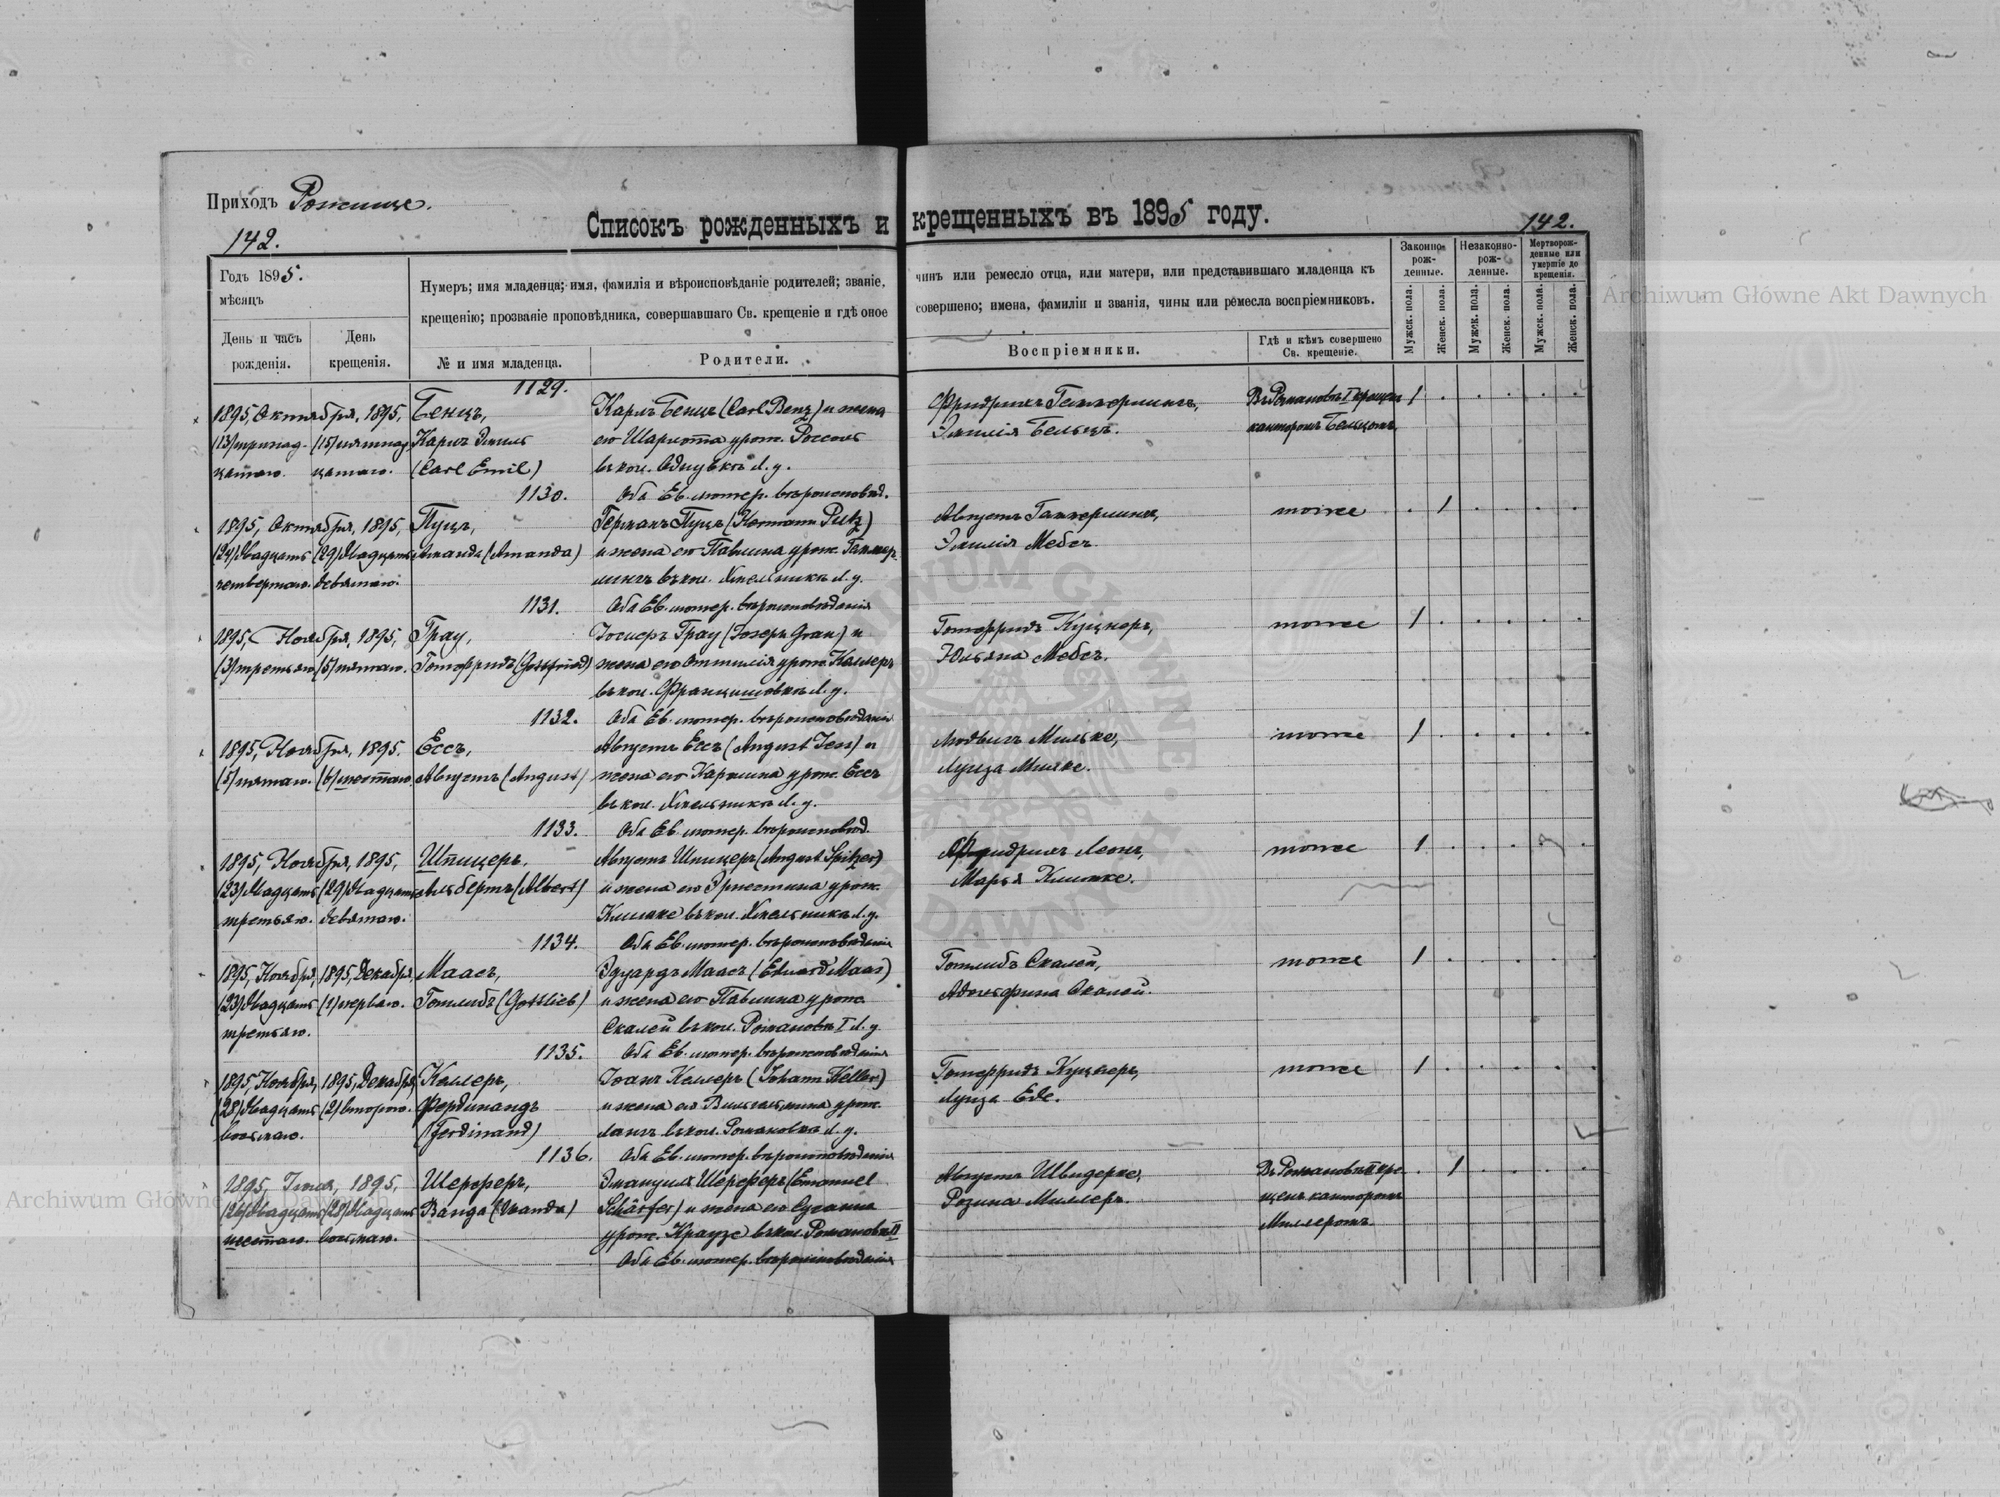 Приходъ Рожище.
142.
Списокъ рожденныхъ и крещенныхъ въ 1895 году.
142.
Годъ 1895.
мѣсяцъ
День и часъ рожденія.
День крещенія.
Нумеръ; имя младенца; имя, фамилія и вѣроисповѣданіе родителей; званіе, чинъ или ремесло отца, или матери, или представившаго младенца къ
крещенію; прозваніе проповѣдника, совершавшаго Св. крещеніе и гдѣ оное совершено; имена, фамиліи и званія, чины или ремесла воспріемниковъ.
№ и имя младенца.
Родители.
Воспріемники.
Гдѣ и кѣмъ совершено Св. крещеніе.
Законно-рож-денные.
Незаконно-рож-денные.
Мертворож-денные или умершіе до крещенія.
Мужск. пола.
Женск. пола.
Мужск. пола.
Женск. пола.
Мужск. пола.
Женск. пола.
1129.
1895, Октября, 1895, Бенцъ, Карлъ Бенцъ (Carl Benz) и жена Фридрихъ 1
(13) тринад- (15) пятнад Карлъ Эмиль его Шарлота урож. Эмилія Бельцъ. канторомъ Бельцомъ.
цатаго. цатаго. (Carl Emil) въ кол. л. у.
1130. Оба Ев. лютер. вѣроисповѣд.
1895, Октября, 1895, Пуцъ, Германъ Пуцъ (Hermann Putz) Августъ тоже 1
(24) двадцать (29) двадцать Аманда (Amanda) и жена его Павлина урож. Эмилія Мебсъ.
четвертаго. девятаго. въ кол. Хмельникъ л. у.
1131. Оба Ев. лютер. вѣроисповѣданія
1895, Ноября, 1895, Грау, Іосифъ Грау (Joseph Grau) и Готфридъ Куцнеръ, тоже 1
(3) третьяго (5) пятаго. Готфридъ (Gottfried) жена его Оттилія урож. Келлеръ Юльяна Мебсъ.
въ кол. Францишовкѣ л. у.
1132. Оба Ев. лютер. вѣроисповѣданія
1895, Ноября, 1895. Ессъ, Августъ Ессъ (August Jess) и Людвигъ Мильке, тоже 1
(5) пятаго. (6) шестаго. Августъ (August) жена его Каролина урож. Ессъ Луиза Мильке.
въ кол. Хмельникъ л. у.
1133. Оба Ев. лютер. вѣроисповѣд.
1895, Ноября, 1895, Шпицеръ, Августъ Шпицеръ (August Spitzer) Фридрихъ Леонъ, тоже 1
(23) двадцать (29) двадцать Альбертъ (Albert) и жена его Эрнестина урож. Марья
третьяго. девятаго. въ кол. Хмельникъ л. у.
1134. Оба Ев. лютер. вѣроисповѣданія
1895, Ноября, 1895, Декабря, Маасъ, Эдуардъ Маасъ (Eduard Maas) Готлибъ Скалей, тоже 1
(23) двадцать (1) перваго. Готлибъ (Gottlieb) и жена его Павлина урож. Адольфина Скалей.
третьяго. Скалей въ кол. Романовкѣ I л. у.
1135. Оба Ев. лютер. вѣроисповѣданія
1895, Ноября, 1895, Декабря, Келлеръ, Іоанъ Келлеръ (Johann Keller) Готфридъ Куцнеръ, тоже 1
(28) двадцать (2) втораго. Фердинандъ и жена его Вильгельмина урож. Луиза Еде.
восьмаго. (Ferdinand) Лангъ въ кол. Романовкѣ л. у.
1136. Оба Ев. лютер. вѣроисповѣданія
1895, 1895, Шерферъ, Эмануилъ Шерферъ (Emanuel Августъ Швидерке, Въ Романовкѣ II кре- 1
(26) двадцать (28) двадцать Ванда (Wanda) Schärfer) и жена его Сузанна Розина Миллеръ щенъ канторомъ
шестаго. восьмаго. урож. Краузе въ кол. Романовкѣ II Миллеромъ.
Оба Ев. лютер. вѣроисповѣданія
Archiwum Główne Akt Dawnych
Archiwum Główne Akt Dawnych
ARCHIWUM GŁÓWNE AKT DAWNYCH